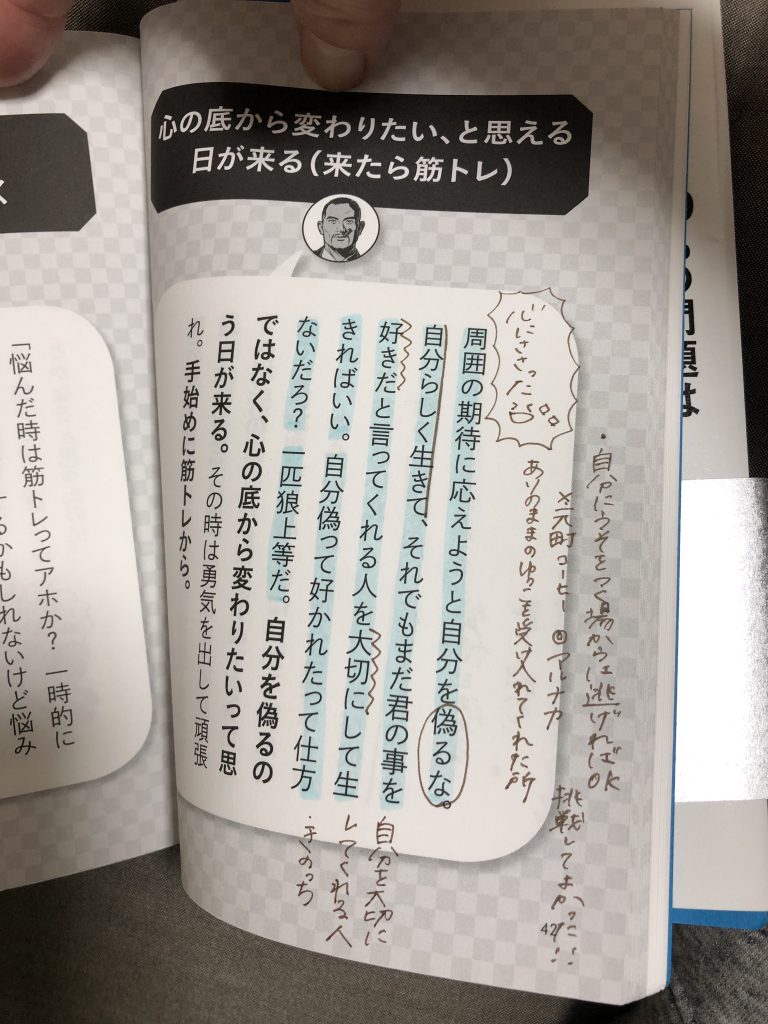 心の底から変わりたい、と思える
日が来る(来たら筋トレ)
・自分にうそをつく場からは逃げればOK
挑戦してよかった!!
×元町コーヒー ◎マルナカ
ありのままのゆきこを受け入れてくれた所
心にささった
周囲の期待に応えようと自分を偽るな。
自分らしく生きて、それでもまだ君の事を
好きだと言ってくれる人を大切にして生
きればいい。自分偽って好かれたって仕方
ないだろ?一匹狼上等だ。自分を偽るの
ではなく、心の底から変わりたいって思
う日が来る。その時は勇気を出して頑張
れ。手始めに筋トレから。
自分を大切に
してくれる人
・きのっち
42
「悩んだ時は筋トレってアホか? 一時的に
るかもしれないけど悩み
問題は